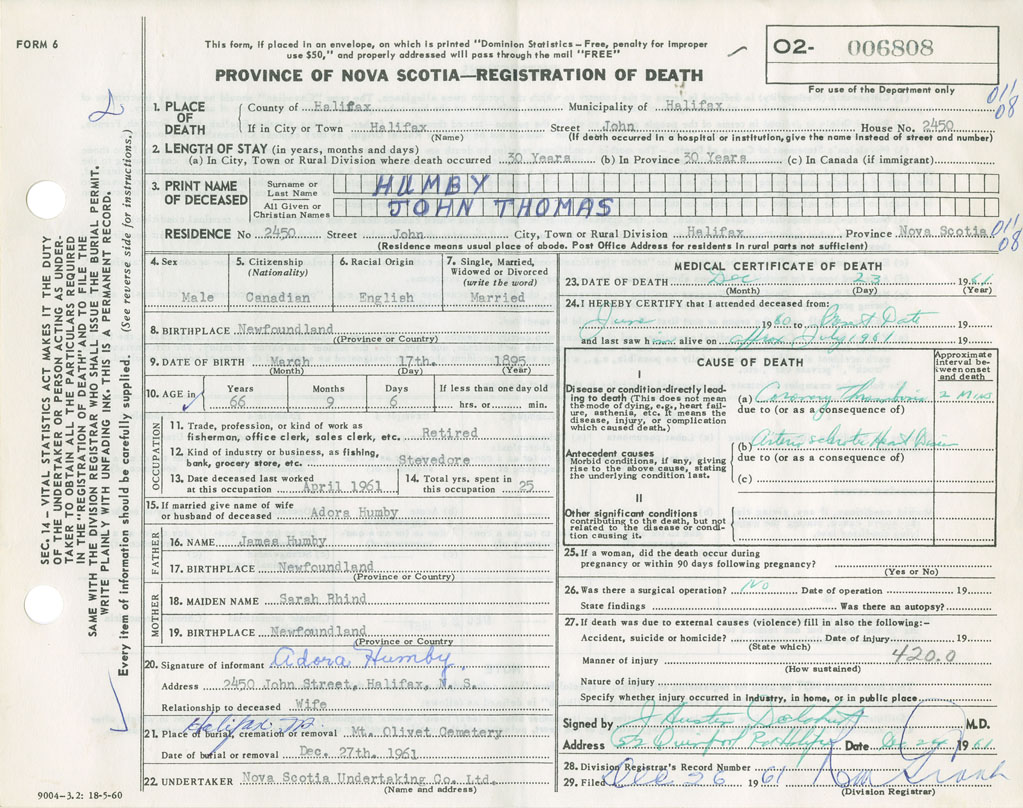 FORM 6
This form, if placed in an envelope, on which is printed "Dominion Statistics – Free, penalty for improper
use $50," and properly addressed will pass through the mail "FREE"
O2- 006808
PROVINCE OF NOVA SCOTIA—REGISTRATION OF DEATH
For use of the Department only
011
08
1. PLACE OF DEATH
County of Halifax Municipality of Halifax
If in City or Town Halifax Street John House No. 2450
(Name) (If death occurred in a hospital or institution, give the name instead of street and number)
2. LENGTH OF STAY (in years, months and days)
(a) In City, Town or Rural Division where death occurred 30 Years (b) In Province 30 Years (c) In Canada (if immigrant)
3. PRINT NAME OF DECEASED
Surname or Last Name HUMBY
All Given or Christian Names JOHN THOMAS
RESIDENCE No 2450 Street John City, Town or Rural Division Halifax Province Nova Scotia
011
08
(Residence means usual place of abode. Post Office Address for residents in rural parts not sufficient)
4. Sex
Male
5. Citizenship
(Nationality)
Canadian
6. Racial Origin
English
7. Single, Married,
Widowed or Divorced
(write the word)
Married
8. BIRTHPLACE Newfoundland
(Province or Country)
9. DATE OF BIRTH March 17th. 1895
(Month) (Day) (Year)
10. AGE in
Years Months Days If less than one day old
66 9 6 hrs. or min.
OCCUPATION
11. Trade, profession, or kind of work as
fisherman, office clerk, sales clerk, etc. Retired
12. Kind of industry or business, as fishing,
bank, grocery store, etc. Stevedore
13. Date deceased last worked
at this occupation April 1961
14. Total yrs. spent in
this occupation 25
15. If married give name of wife
or husband of deceased Adora Humby
FATHER
16. NAME James Humby
17. BIRTHPLACE Newfoundland
(Province or Country)
MOTHER
18. MAIDEN NAME Sarah Rhind
19. BIRTHPLACE Newfoundland
(Province or Country
20. Signature of informant Adora Humby
Address 2450 John Street, Halifax, N. S.
Relationship to deceased Wife
Halifax
21. Place of burial, cremation or removal Mt. Olivet Cemetery
Date of burial or removal Dec. 27th. 1961
22. UNDERTAKER Nova Scotia Undertaking Co. Ltd.
(Name and address)
MEDICAL CERTIFICATE OF DEATH
23. DATE OF DEATH Dec 23 1961
(Month) (Day) (Year)
24. I HEREBY CERTIFY that I attended deceased from:
June 1960 to Present Date 19
and last saw him alive on approx July 1961 19
CAUSE OF DEATH
Approximate
interval be-
tween onset
and death
I
Disease or condition directly lead-
ing to death (This does not mean
the mode of dying, e.g., heart fail-
ure, asthenia, etc. It means the
disease, injury, or complication
which caused death.)
(a) Coronary Thrombosis 2 Mins
due to (or as a consequence of)
Antecedent causes
Morbid conditions, if any, giving
rise to the above cause, stating
the underlying condition last.
(b) Arterio sclerotic Heart Disease
due to (or as a consequence of)
(c)
II
Other significant conditions
contributing to the death, but not
related to the disease or condi-
tion causing it.
25. If a woman, did the death occur during
pregnancy or within 90 days following pregnancy?
(Yes or No)
26. Was there a surgical operation? No Date of operation 19
State findings Was there an autopsy?
27. If death was due to external causes (violence) fill in also the following:–
Accident, suicide or homicide? Date of injury 19
(State which)
420.0
Manner of injury
(How sustained)
Nature of injury
Specify whether injury occurred in industry, in home, or in public place
Signed by M.D.
Address Date Dec 24 1961
28. Division Registrar's Record Number
29. Filed Dec 26 1961
(Division Registrar)
SEC. 14 – VITAL STATISTICS ACT MAKES IT THE DUTY
OF THE UNDERTAKER OR PERSON ACTING AS UNDER-
TAKER TO OBTAIN ALL THE PARTICULARS REQUIRED
IN THE "REGISTRATION OF DEATH" AND TO FILE THE
SAME WITH THE DIVISION REGISTRAR WHO SHALL ISSUE THE BURIAL PERMIT.
WRITE PLAINLY WITH UNFADING INK. THIS IS A PERMANENT RECORD.
Every item of information should be carefully supplied. (See reverse side for instructions.)
9004–3.2: 18-5-60